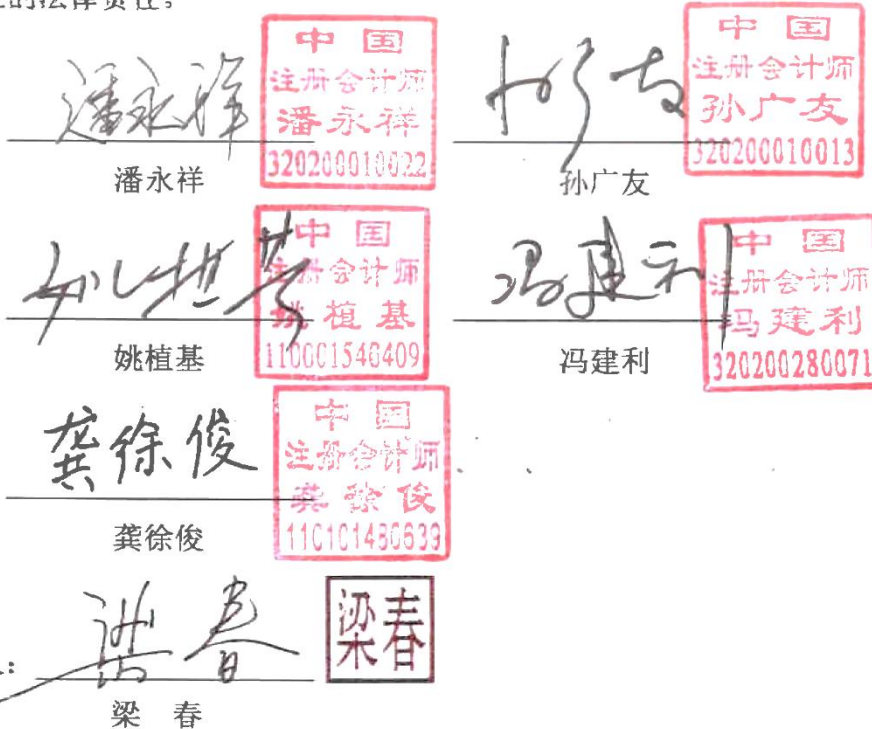 的法律责任。
潘永祥
中国
注册会计师
潘永祥
320200010022
潘永祥
中国
注册会计师
孙广友
320200010013
孙广友
姚植基
中国
注册会计师
姚植基
110001540409
姚植基
冯建利
中国
注册会计师
冯建利
320200280071
冯建利
龚徐俊
中国
注册会计师
龚徐俊
110101480639
龚徐俊
梁春
梁春
梁 春